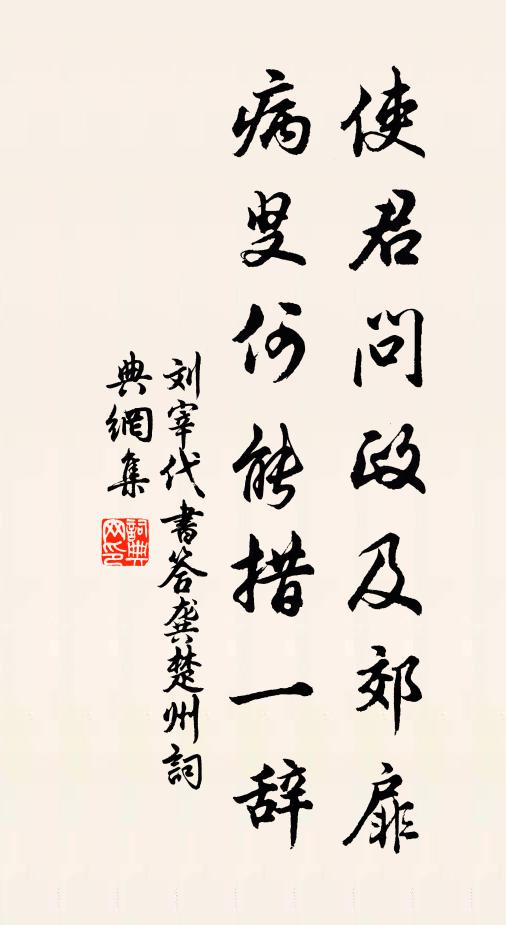 使君问政及郊扉
病叟何能措一辞
刘宰代书答龚楚州词
典網集
詞典网印